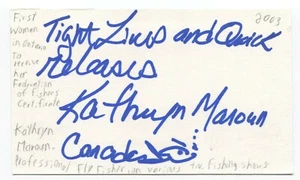 First
Woman
in Ontario
to
receive
her
Federation
of Fishers
Certificate
Kathryn
Maroun-
Professional Fly Fisherian various T.V. Fishing shows
2003
Tight Lines and Quick
Releases
Kathryn Maroun
Canada